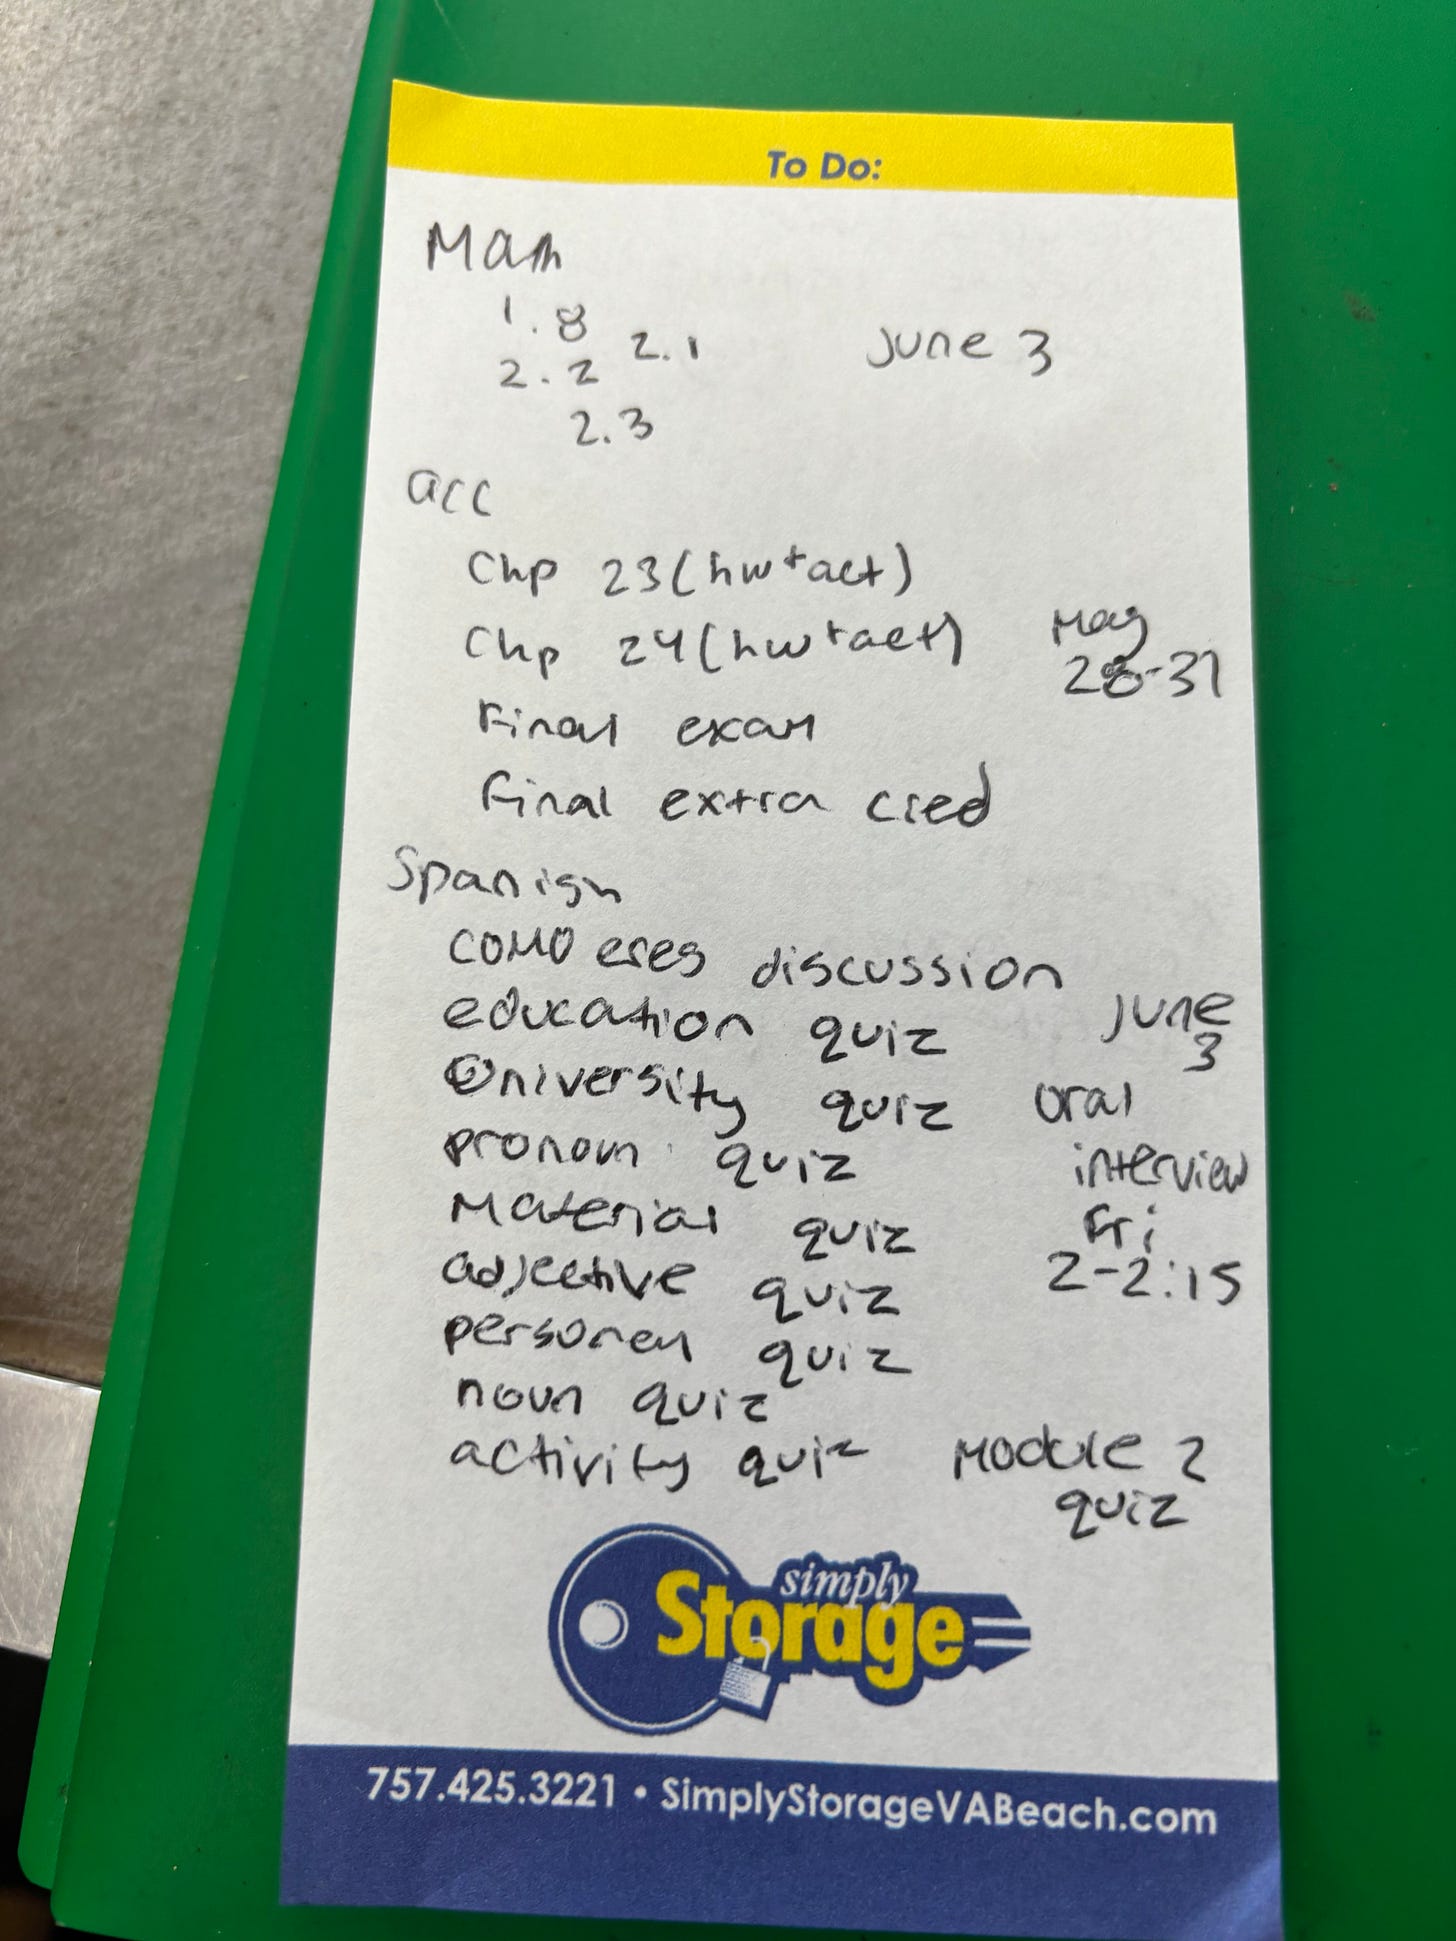 To Do:
Math
1.8
2.1
june 3
2.2
2.3
acc
Chp 23 (hw + act)
Chp 24 (hw + act)
May
28-31
Final exam
Final extra cred
Spanish
como eres discussion
education quiz
june
3
University quiz
oral
interview
Fri
2-2:15
pronoun quiz
Material quiz
adjective quiz
quiz
noun quiz
activity quiz
Module 2
quiz
simply
Storage
757.425.3221 • SimplyStorageVABeach.com